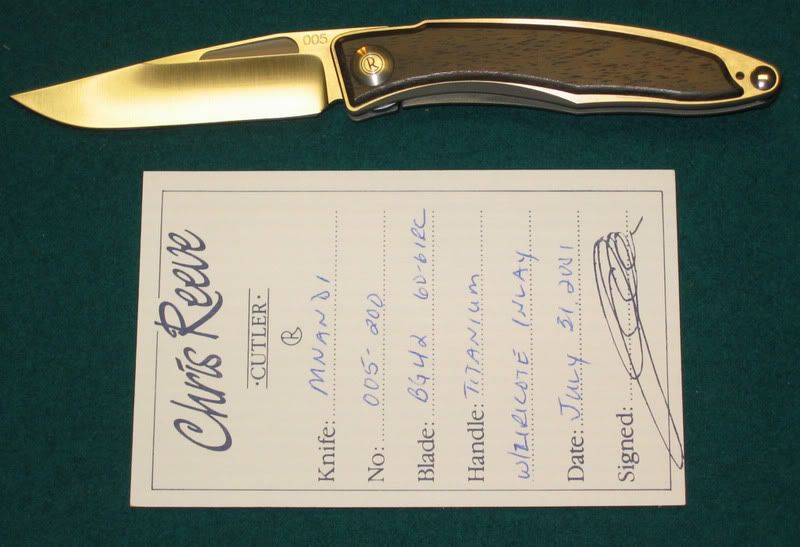 005
R
Chris Reeve
·CUTLER·
R
Knife: MNANDI
No: 005-200
Blade: BG42 60-61RC
Handle: TITANIUM
W/ZIRICOTE INLAY
Date: JULY 31, 2001
Signed: